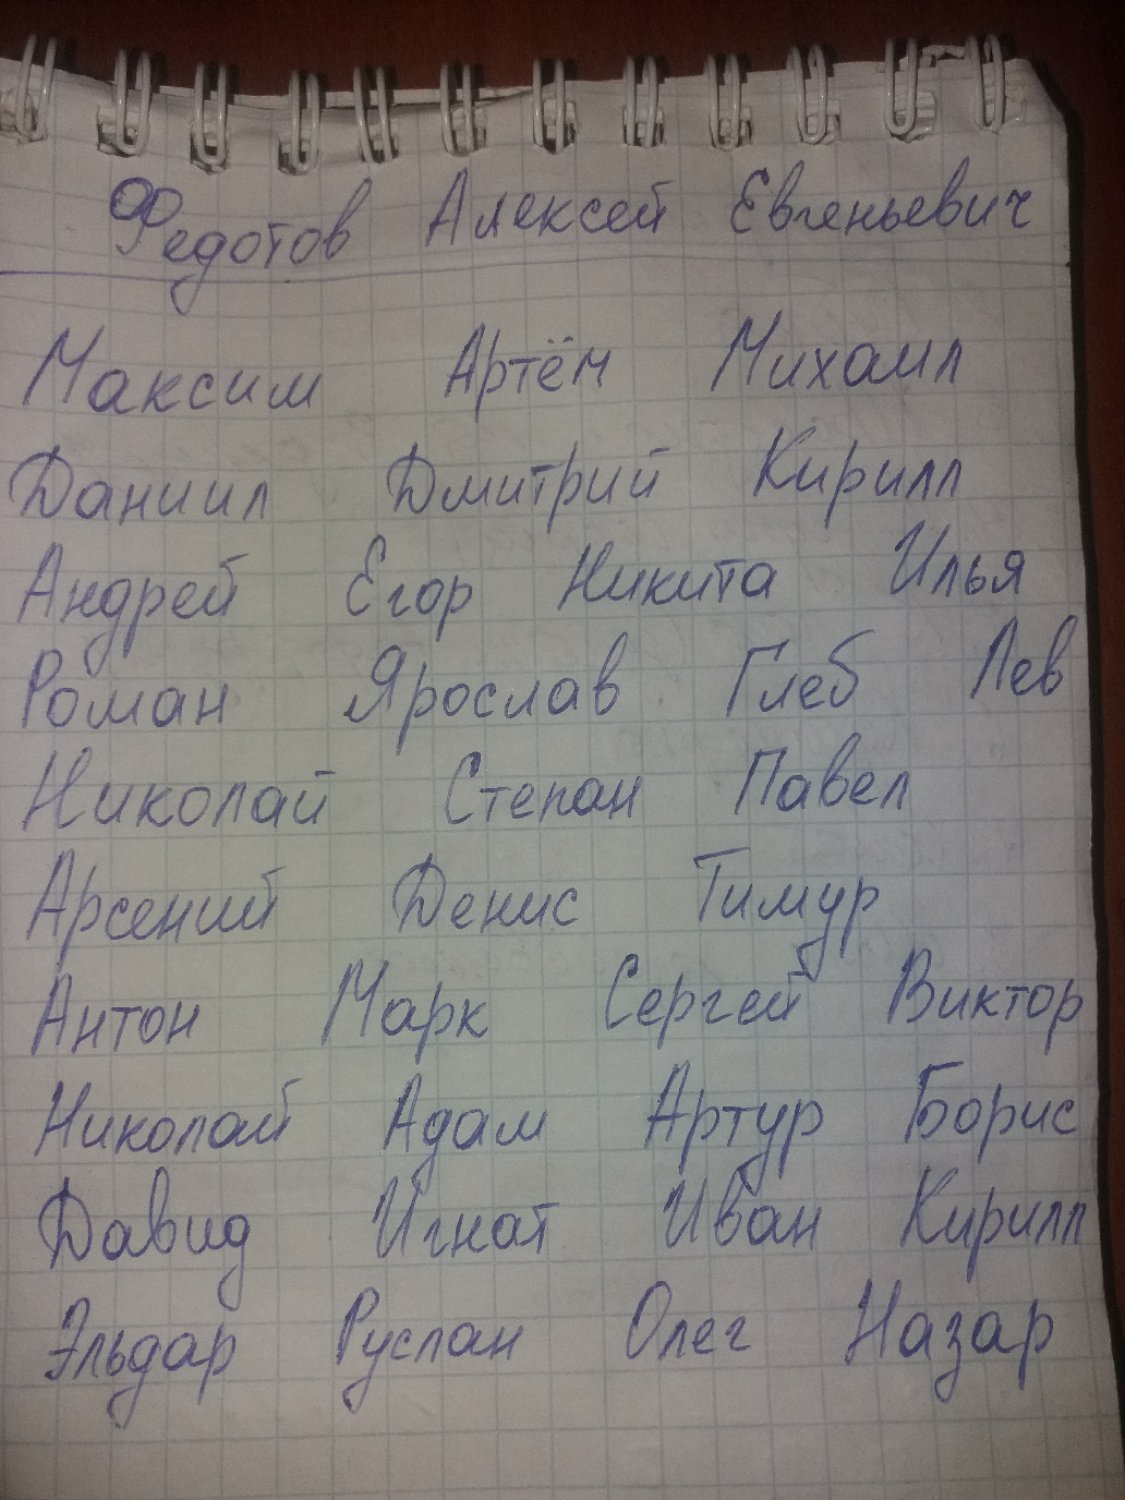 Федотов Алексей Евгеньевич
Максим Артём Михаил
Даниил Дмитрий Кирилл
Андрей Егор Никита Илья
Роман Ярослав Глеб Лев
Николай Степан Павел
Арсений Денис Тимур
Антон Марк Сергей Виктор
Николай Адам Артур Борис
Давид Игнат Иван Кирилл
Эльдар Руслан Олег Назар